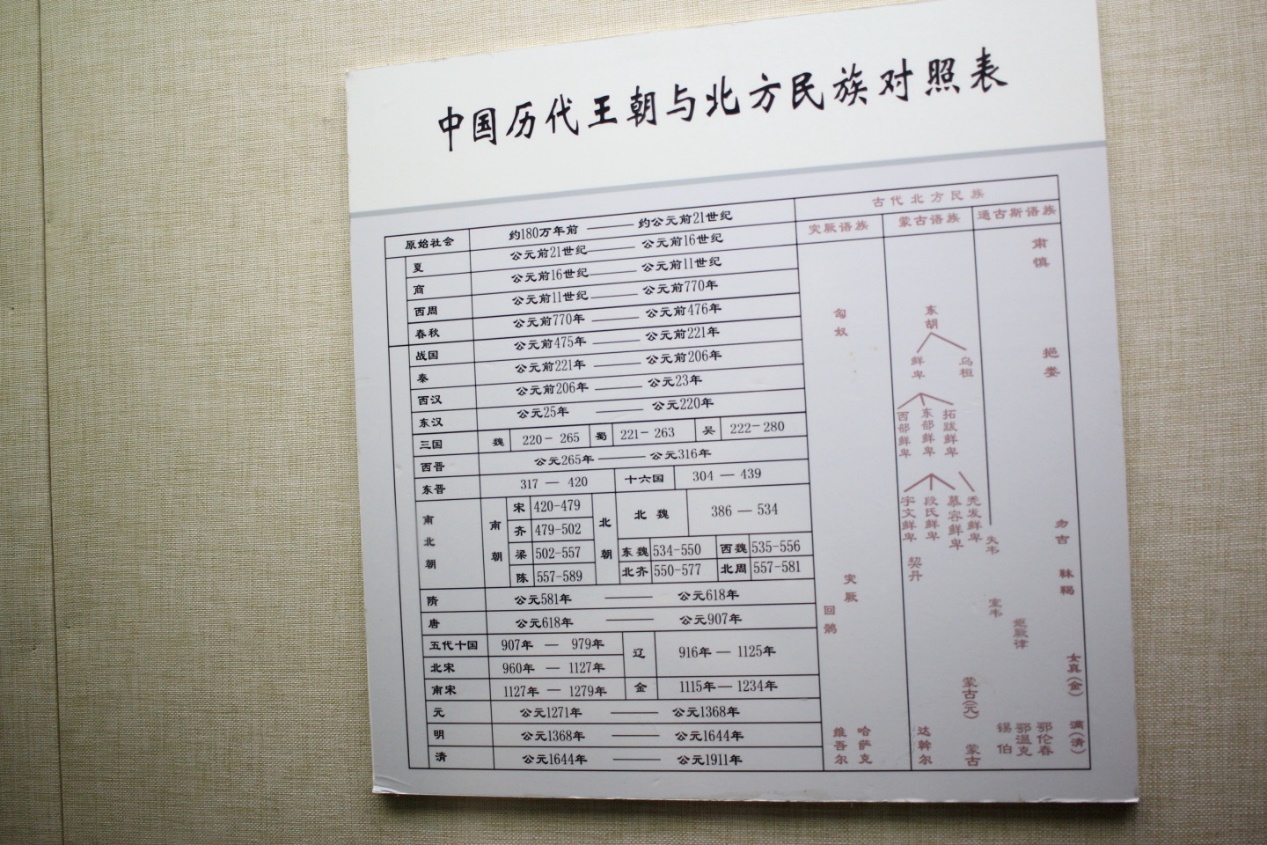 中国历代王朝与北方民族对照表
古代北方民族
原始社会 约180万年前 —— 约公元前21世纪 突厥语族 蒙古语族 通古斯语族
夏 公元前21世纪 —— 公元前16世纪
商 公元前16世纪 —— 公元前11世纪
西周 公元前11世纪 —— 公元前770年
春秋 公元前770年 —— 公元前476年
战国 公元前475年 —— 公元前221年
秦 公元前221年 —— 公元前206年
西汉 公元前206年 —— 公元23年
东汉 公元25年 —— 公元220年
三国 魏 220-265 蜀 221-263 吴 222-280
西晋 公元265年 —— 公元316年
东晋 317 — 420 十六国 304 — 439
南北朝 南朝 宋 420-479 北朝 北魏 386 — 534
齐 479-502
梁 502-557 东魏 534-550 西魏 535-556
陈 557-589 北齐 550-577 北周 557-581
隋 公元581年 —— 公元618年
唐 公元618年 —— 公元907年
五代十国 907年 — 979年 辽 916年 — 1125年
北宋 960年 — 1127年
南宋 1127年 — 1279年 金 1115年 — 1234年
元 公元1271年 —— 公元1368年
明 公元1368年 —— 公元1644年
清 公元1644年 —— 公元1911年
匈奴
突厥
回鹘
维吾尔
哈萨克
东胡
鲜卑
乌桓
西部鲜卑
东部鲜卑
拓跋鲜卑
宇文鲜卑
段氏鲜卑
慕容鲜卑
秃发鲜卑
契丹
失韦
室韦
蒙古(元)
达斡尔
蒙古
肃慎
挹娄
勿吉
靺鞨
女真(金)
锡伯
鄂温克
鄂伦春
满(清)